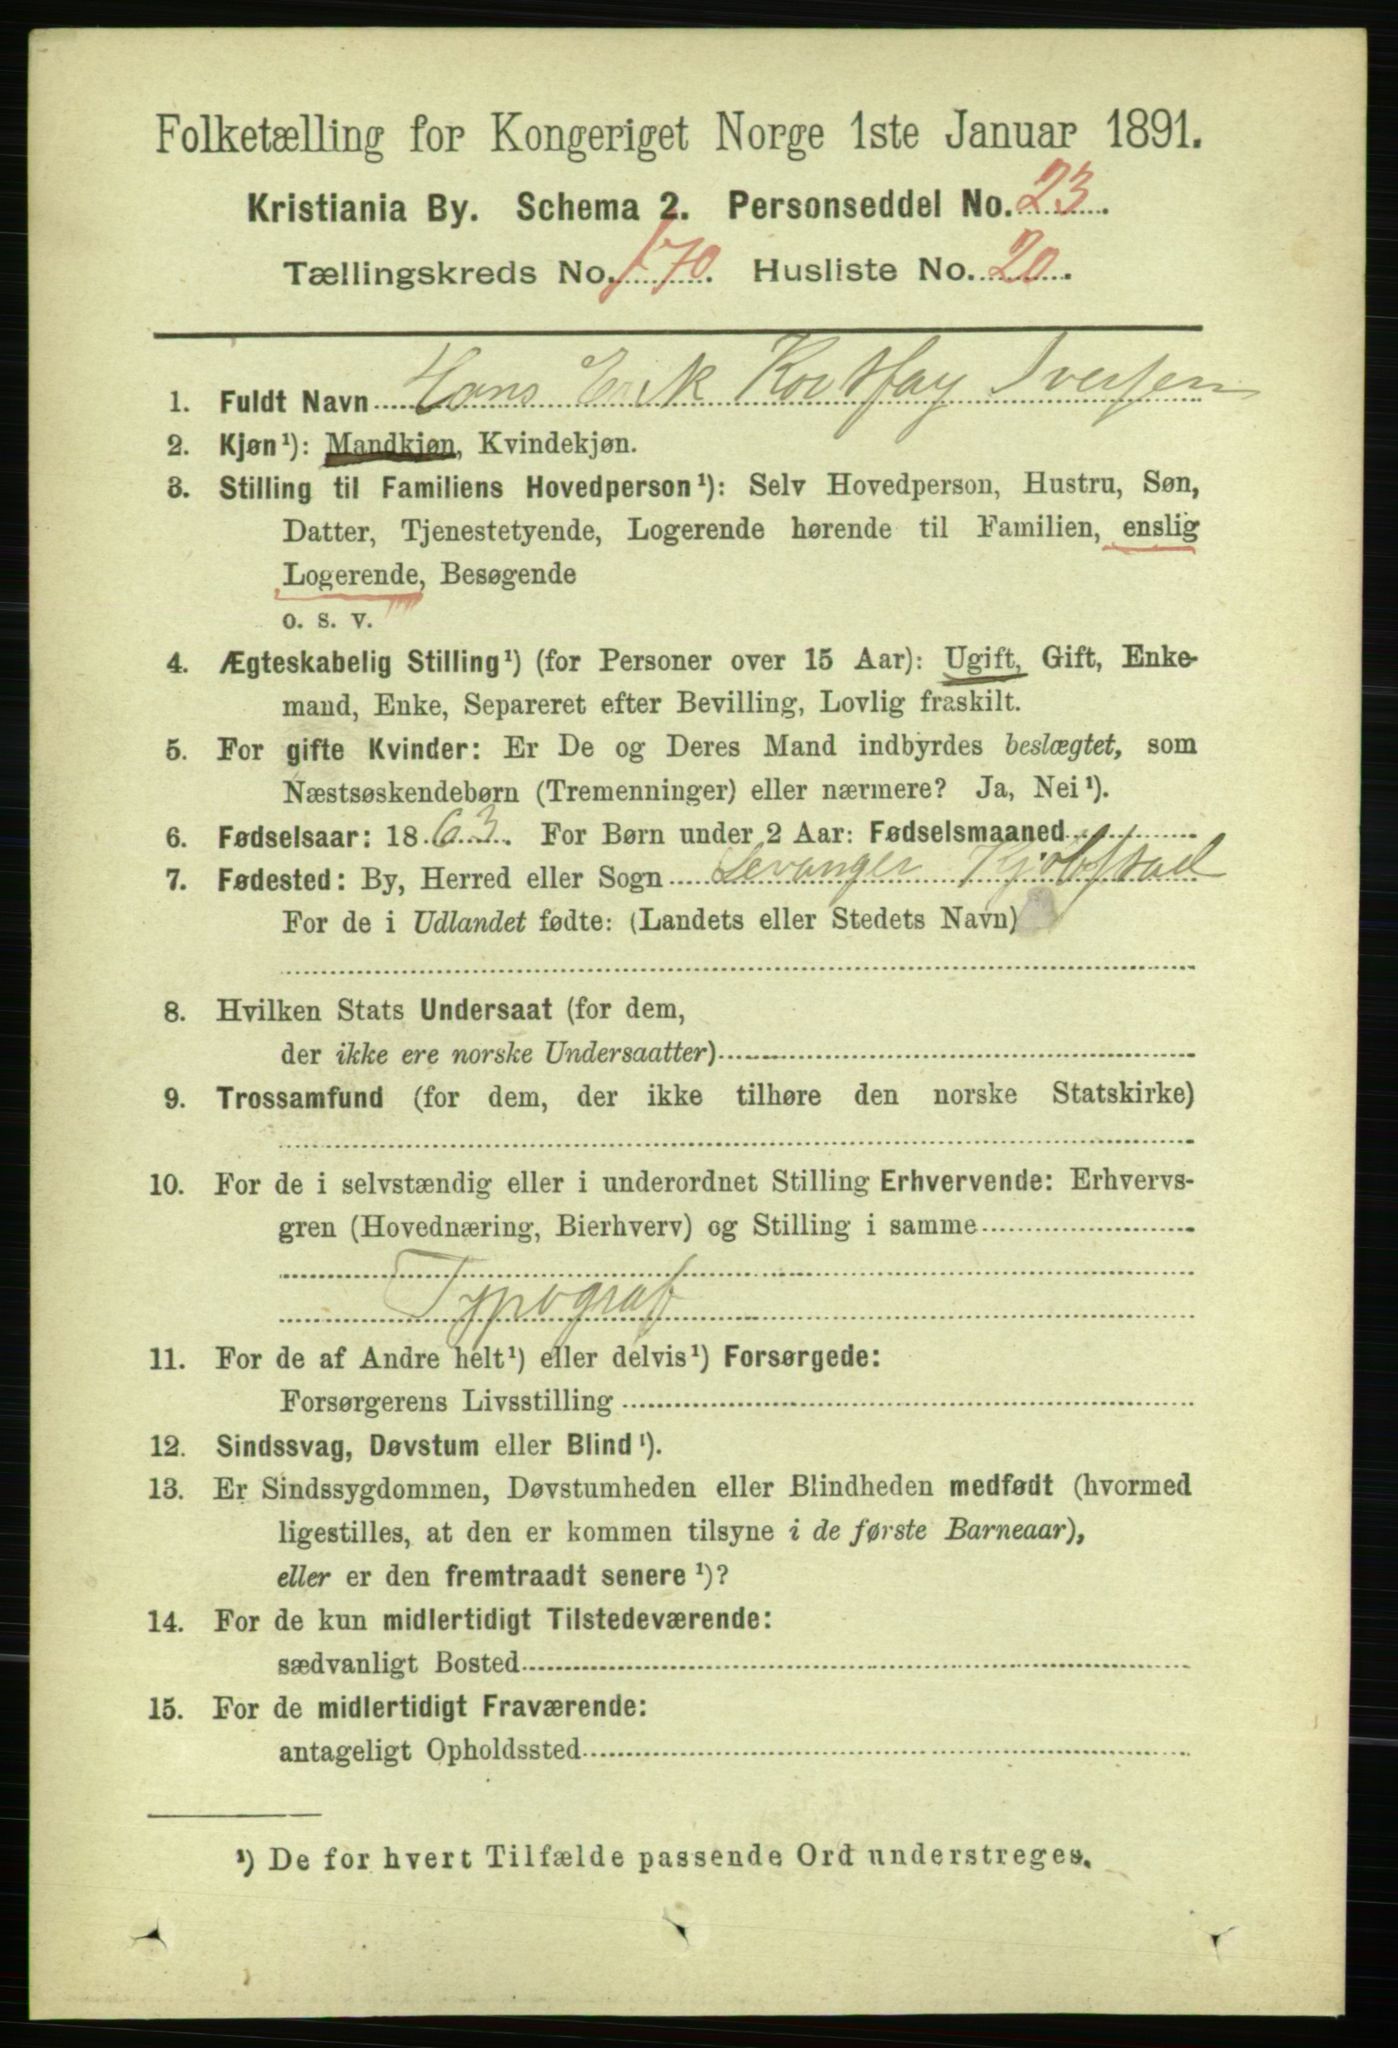 Folketælling for Kongeriget Norge 1ste Januar 1891.
Kristiania By. Schema 2. Personseddel No. 23.
Tællingskreds No. 170. Husliste No. 20.
1. Fuldt Navn Hans Erik Iversen
2. Kjøn¹): Mandkjøn, Kvindekjøn.
3. Stilling til Familiens Hovedperson¹): Selv Hovedperson, Hustru, Søn,
Datter, Tjenestetyende, Logerende hørende til Familien, enslig
Logerende, Besøgende
o. s. v.
4. Ægteskabelig Stilling¹) (for Personer over 15 Aar): Ugift, Gift, Enke-
mand, Enke, Separeret efter Bevilling, Lovlig fraskilt.
5. For gifte Kvinder: Er De og Deres Mand indbyrdes beslægtet, som
Næstsøskendebørn (Tremenninger) eller nærmere? Ja, Nei¹).
6. Fødselsaar: 1863. For Børn under 2 Aar: Fødselsmaaned
7. Fødested: By, Herred eller Sogn Levanger Kjøbstad
For de i Udlandet fødte: (Landets eller Stedets Navn)
8. Hvilken Stats Undersaat (for dem,
der ikke ere norske Undersaatter)
9. Trossamfund (for dem, der ikke tilhøre den norske Statskirke)
10. For de i selvstændig eller i underordnet Stilling Erhvervende: Erhvervs-
gren (Hovednæring, Bierhverv) og Stilling i samme
Typograf
11. For de af Andre helt¹) eller delvis¹) Forsørgede:
Forsørgerens Livsstilling
12. Sindssvag, Døvstum eller Blind¹).
13. Er Sindssygdommen, Døvstumheden eller Blindheden medfødt (hvormed
ligestilles, at den er kommen tilsyne i de første Barneaar),
eller er den fremtraadt senere¹)?
14. For de kun midlertidigt Tilstedeværende:
sædvanligt Bosted
15. For de midlertidigt Fraværende:
antageligt Opholdssted
¹) De for hvert Tilfælde passende Ord understreges.